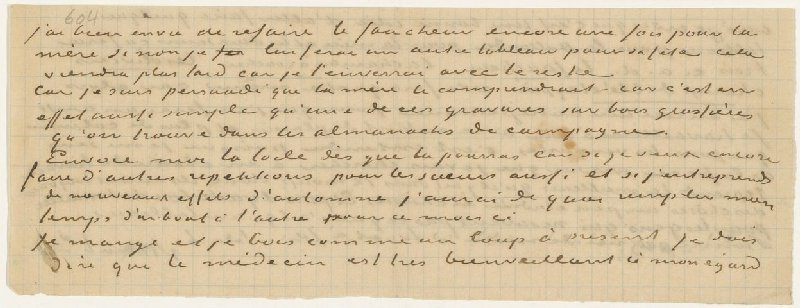 604
j'ai bien envie de refaire le faucheur encore une fois pour la
mère si non je lui ferai un autre tableau pour sa fête cela
viendra plus tard car je l'enverrai avec le reste
Car je suis persuadé que la mère le comprendrait – car c'est en
effet aussi simple qu'une de ces gravures sur bois grossières
qu'on trouve dans les almanachs de campagne.
Envoie moi la toile dès que tu pourras car si je veux encore
faire d'autres repetitions pour les sœurs aussi et si j'entreprends
de nouveaux effets d'automne j'aurai de quoi remplir mon
temps d'un bout à l'autre pour ce mois ci
Je mange et je bois comme un loup à present je dois
dire que le médecin est très bienveillant à mon égard